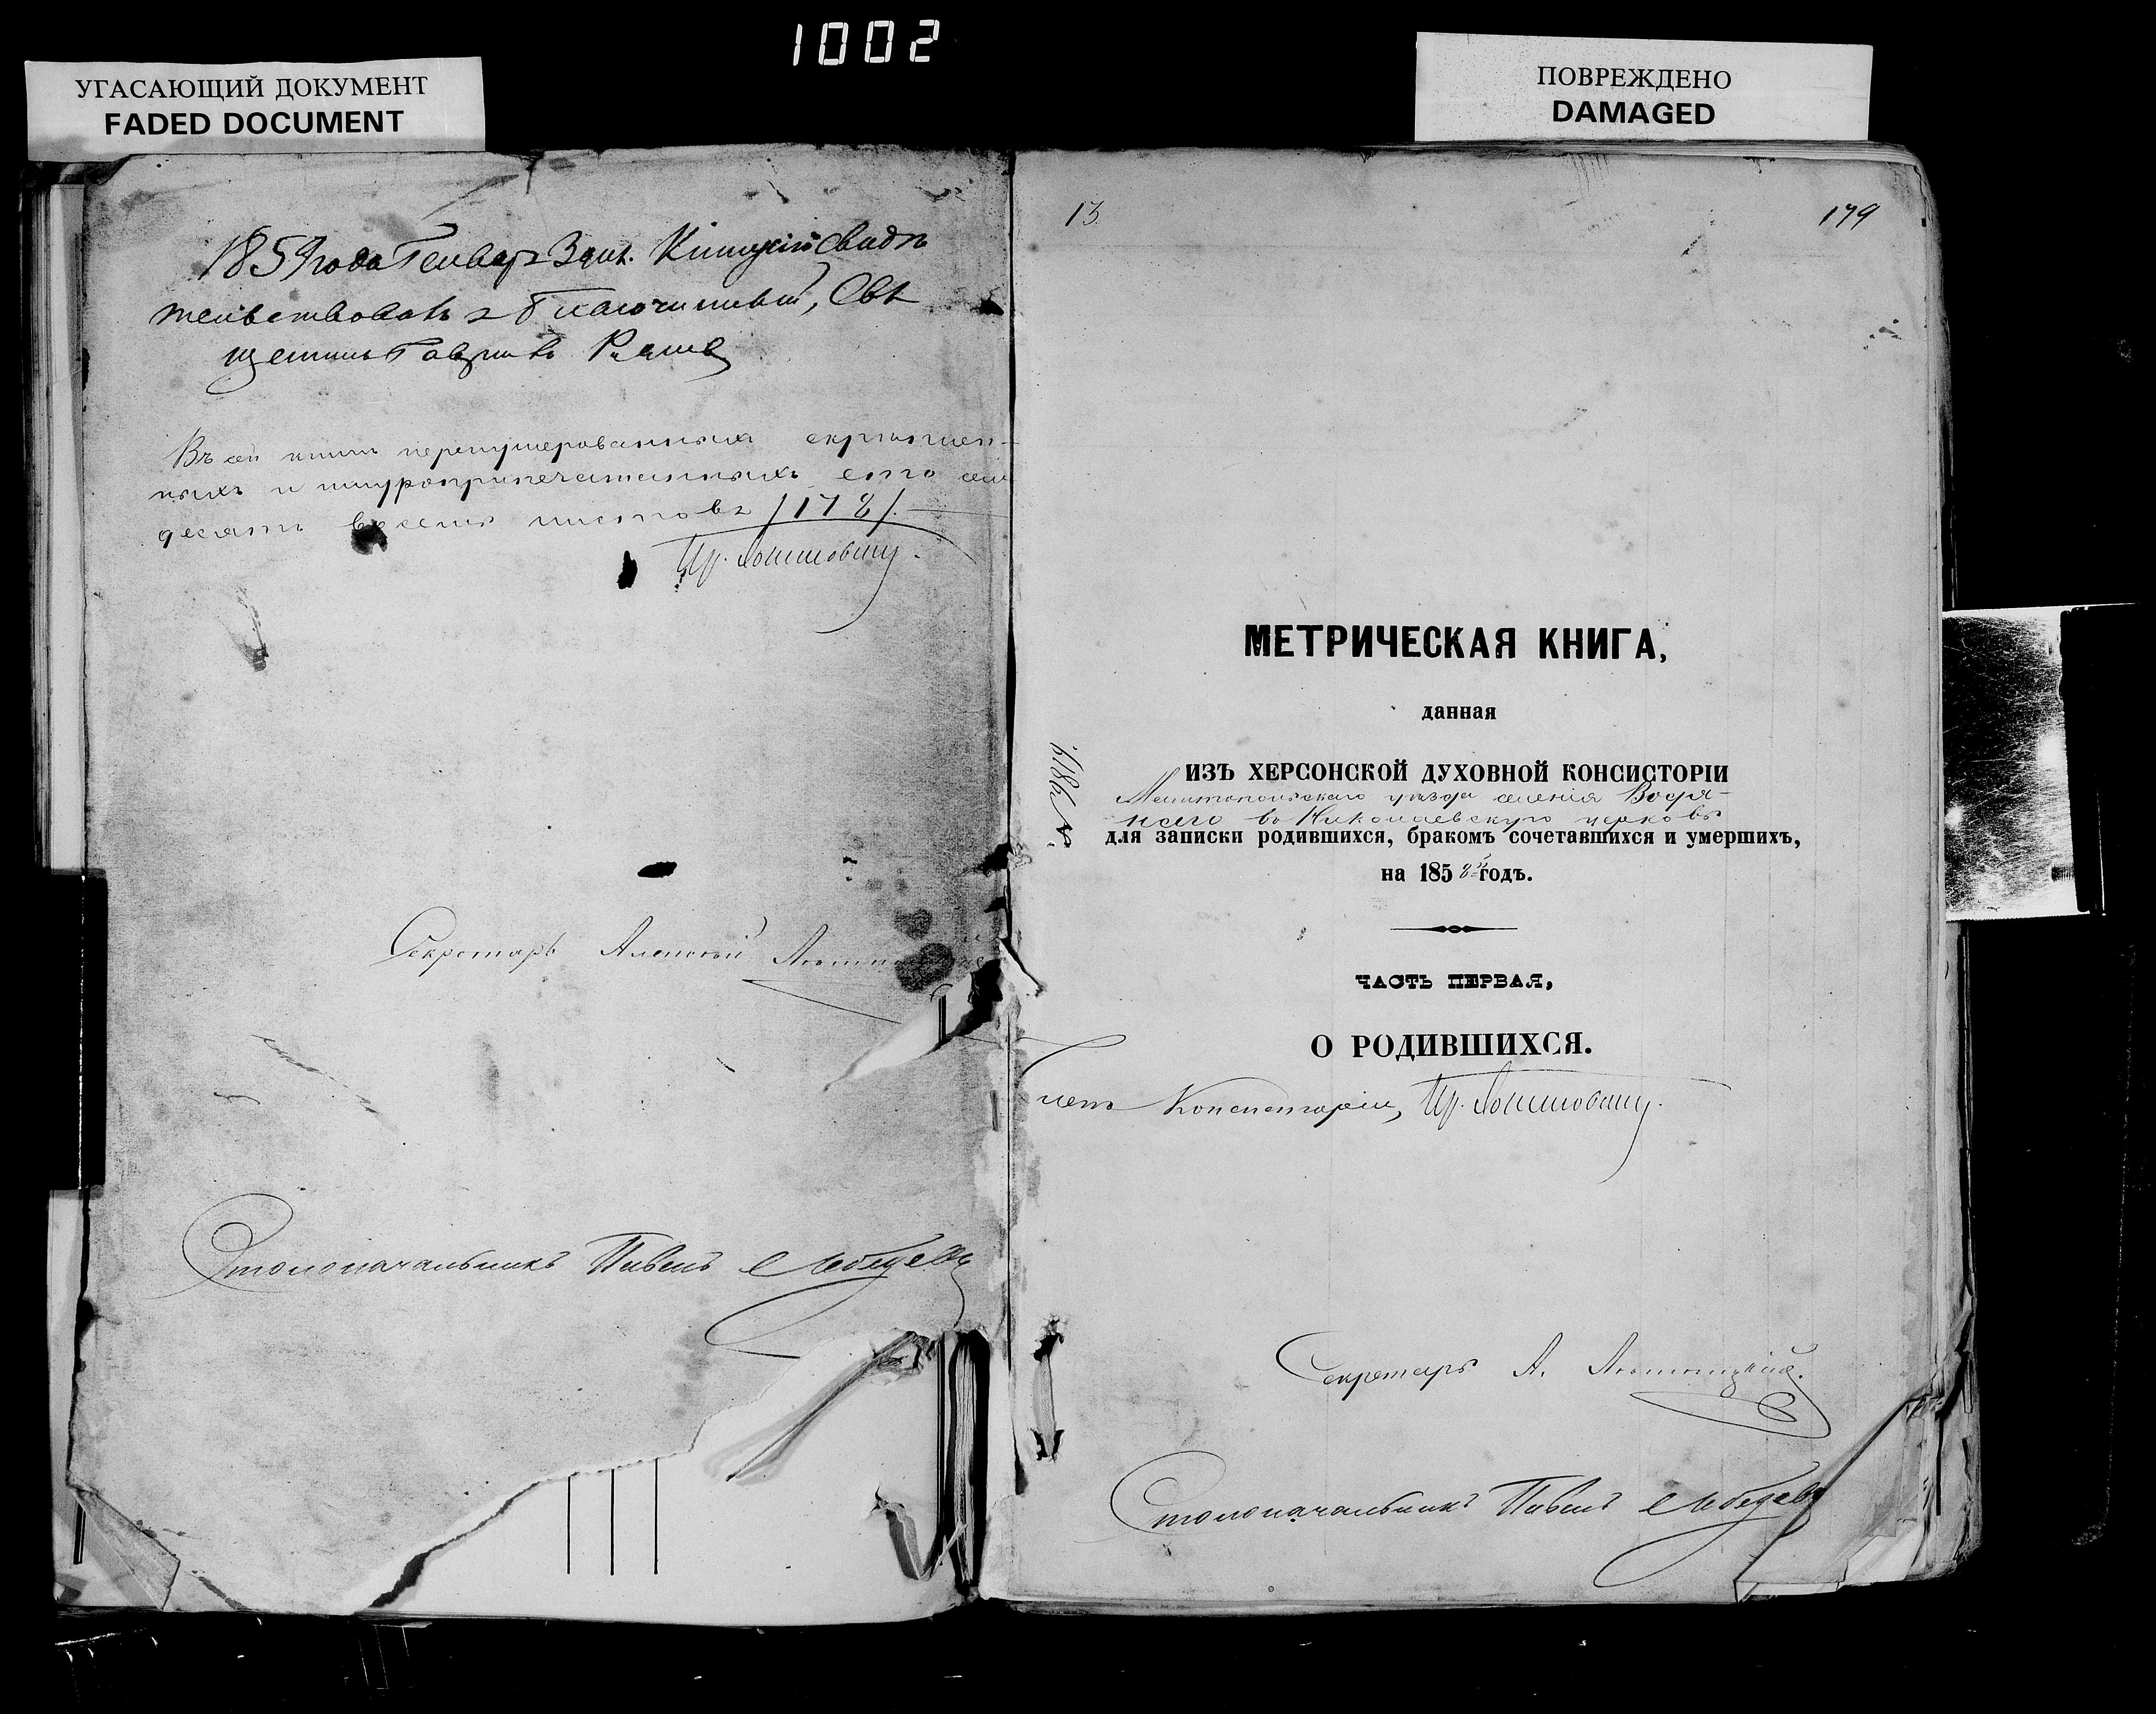 1002
УГАСАЮЩИЙ ДОКУМЕНТ
FADED DOCUMENT
ПОВРЕЖДЕНО
DAMAGED
1859 года Генваря 3 дня. Книгу сію свидѣ
тельствовалъ Благочинный, Свя
щенникъ Гавріилъ
Въ сей книгѣ перенумерованныхъ скрѣплен-
ныхъ и шнуроприпечатанныхъ сто сем
десятъ восемь листовъ /178/.
Пр.
Секретарь Алексѣй
Столоначальникъ Павелъ Лебедевъ
13.
179
МЕТРИЧЕСКАЯ КНИГА,
данная
ИЗЪ ХЕРСОНСКОЙ ДУХОВНОЙ КОНСИСТОРІИ
Мелитопольскаго уѣзда селенія Водя-
наго въ Николаевскую церковь
для записки родившихся, бракомъ сочетавшихся и умершихъ,
на 1858й годъ.
ЧАСТЬ ПЕРВАЯ,
О РОДИВШИХСЯ.
Членъ Консисторіи, Пр.
Секретарь А.
Столоначальникъ Павелъ Лебедевъ